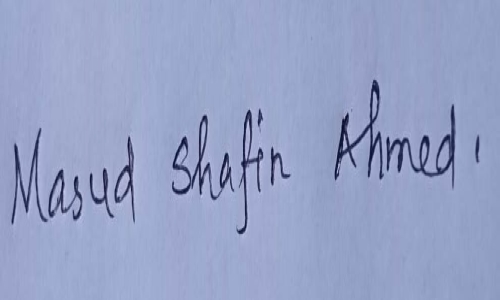 Masud Shafin Ahmed.